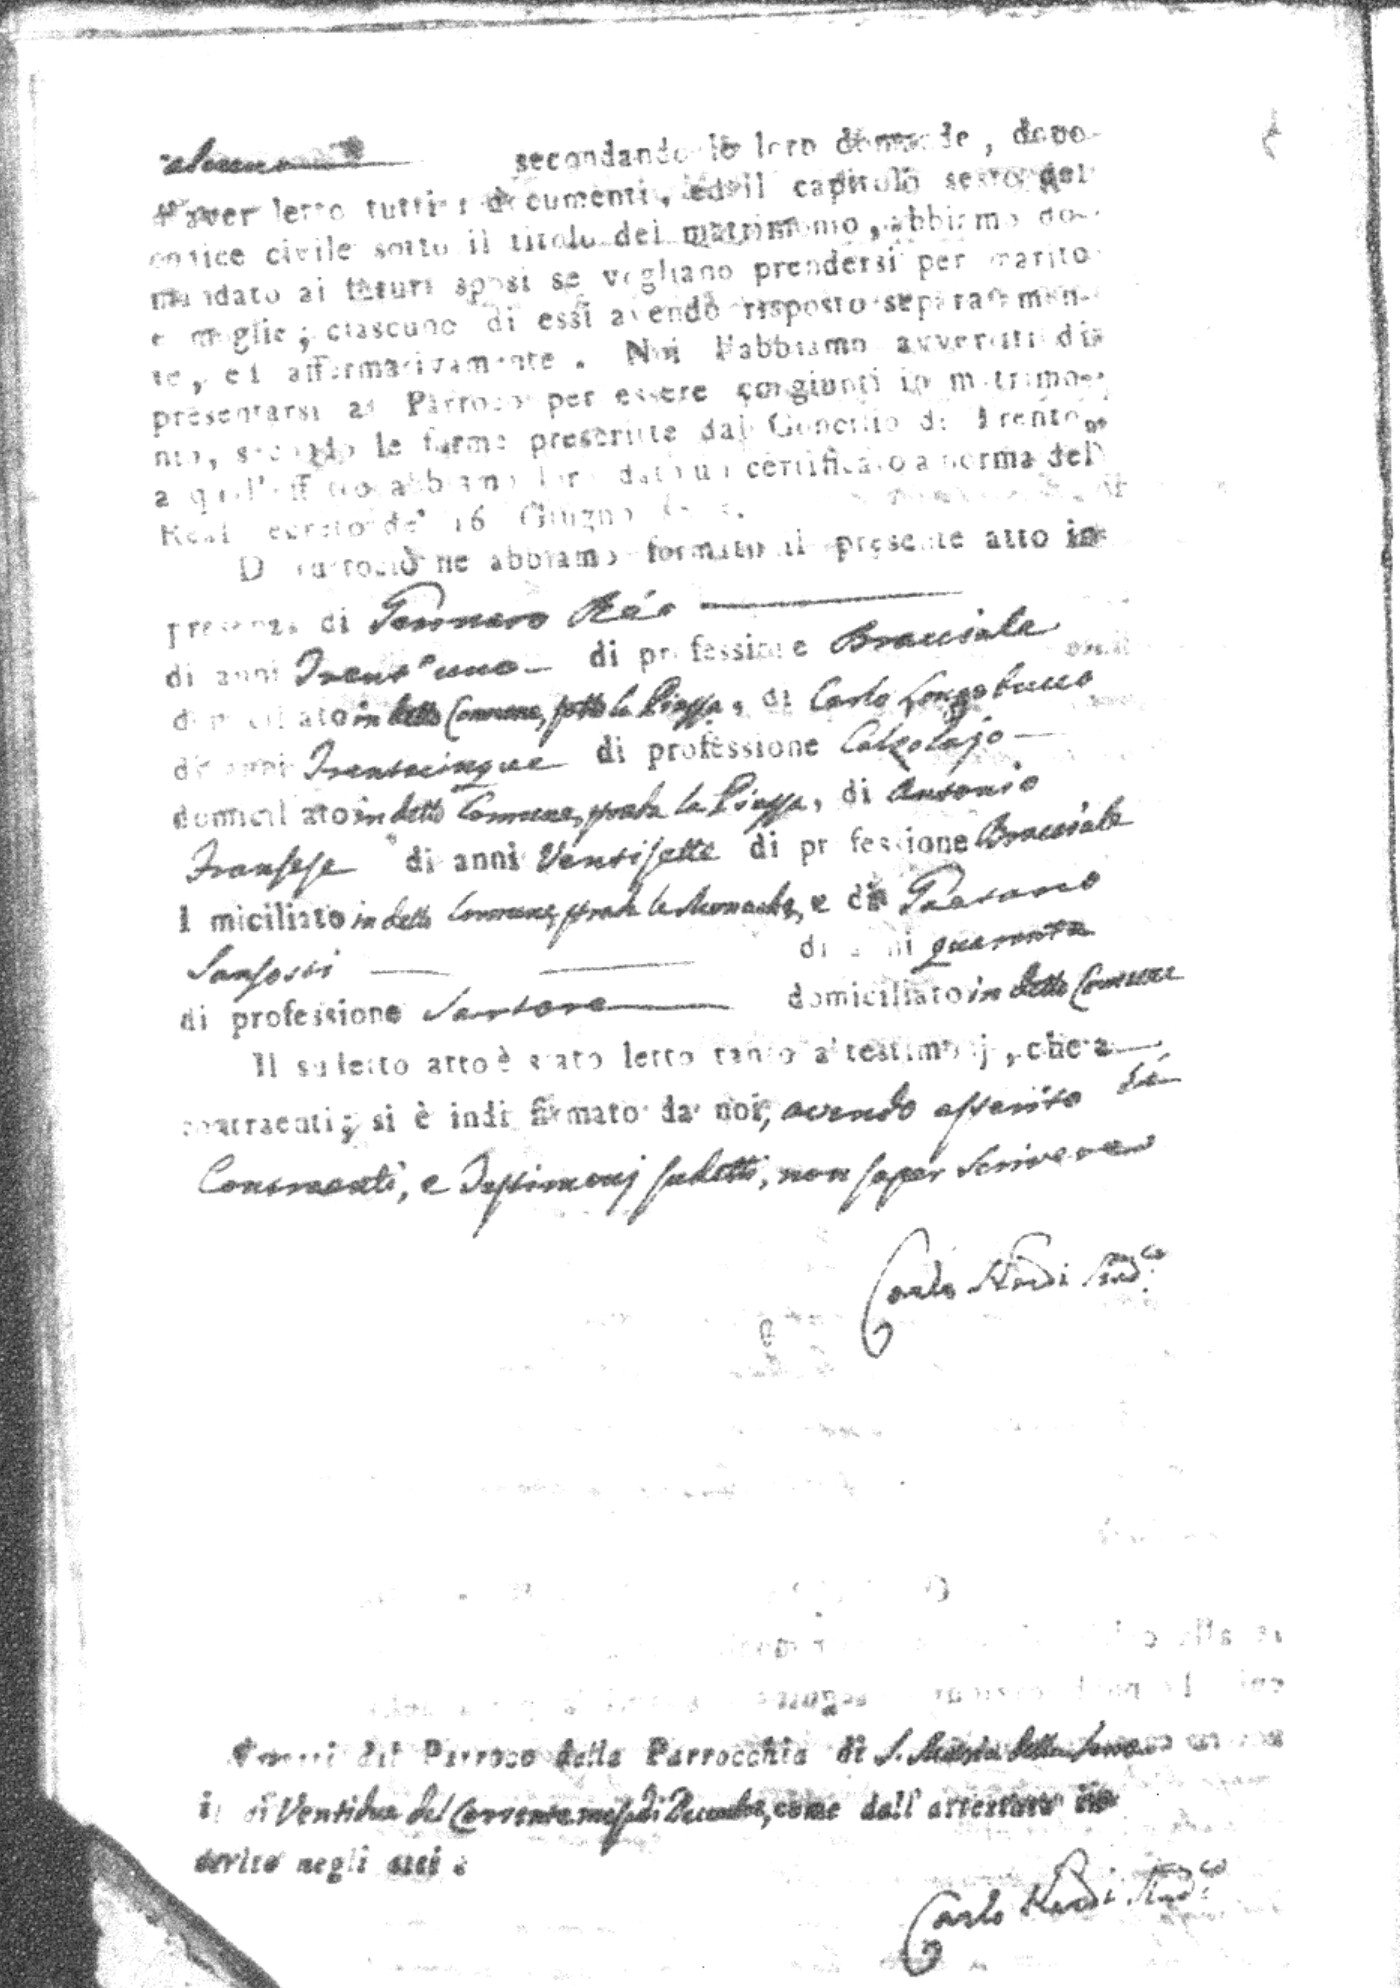 alcuna secondando le loro domande, dopo
d'aver letto tutti i documenti, ed il capitolo sesto del
codice civile sotto il titolo del matrimonio, abbiamo do-
mandato ai futuri sposi se vogliano prendersi per marito
e moglie; ciascuno di essi avendo risposto separatamen-
te, ed affermativamente. Noi l'abbiamo avvertiti di
presentarsi al Parroco per essere congiunti in matrimo-
nio, secondo le forme prescritte dal Concilio di Trento,
a quell'effetto abbiamo loro dato un certificato a norma del
Real decreto de' 16 Giugno
Di tutto ciò ne abbiamo formato il presente atto in
presenza di Gennaro Réo
di anni Trent'uno di professione Bracciale
domiciliato in detto Comune, sotto la Piazza, di Carlo Longobucco
di anni Trentacinque di professione Calzolajo
domiciliato in detto Comune, strada la Piazza, di Antonio
Transese di anni Ventisette di professione Bracciale
domiciliato in detto Comune, strada le Monache, e di Gaetano
Sansosti di anni quaranta
di professione Sartore domiciliato in detto Comune
Il sudetto atto è stato letto tanto a' testimonj, che a
contraenti; si è indi firmato da noi, avendo asserito li
Contraenti, e Testimonj sudetti, non saper scrivere
Carlo Sind.co
del Parroco della Parrocchia di S. Maria della
il dì Ventidue del Corrente mese di Decembre, come dall' attestato in-
serito negli atti
Carlo Sind.co